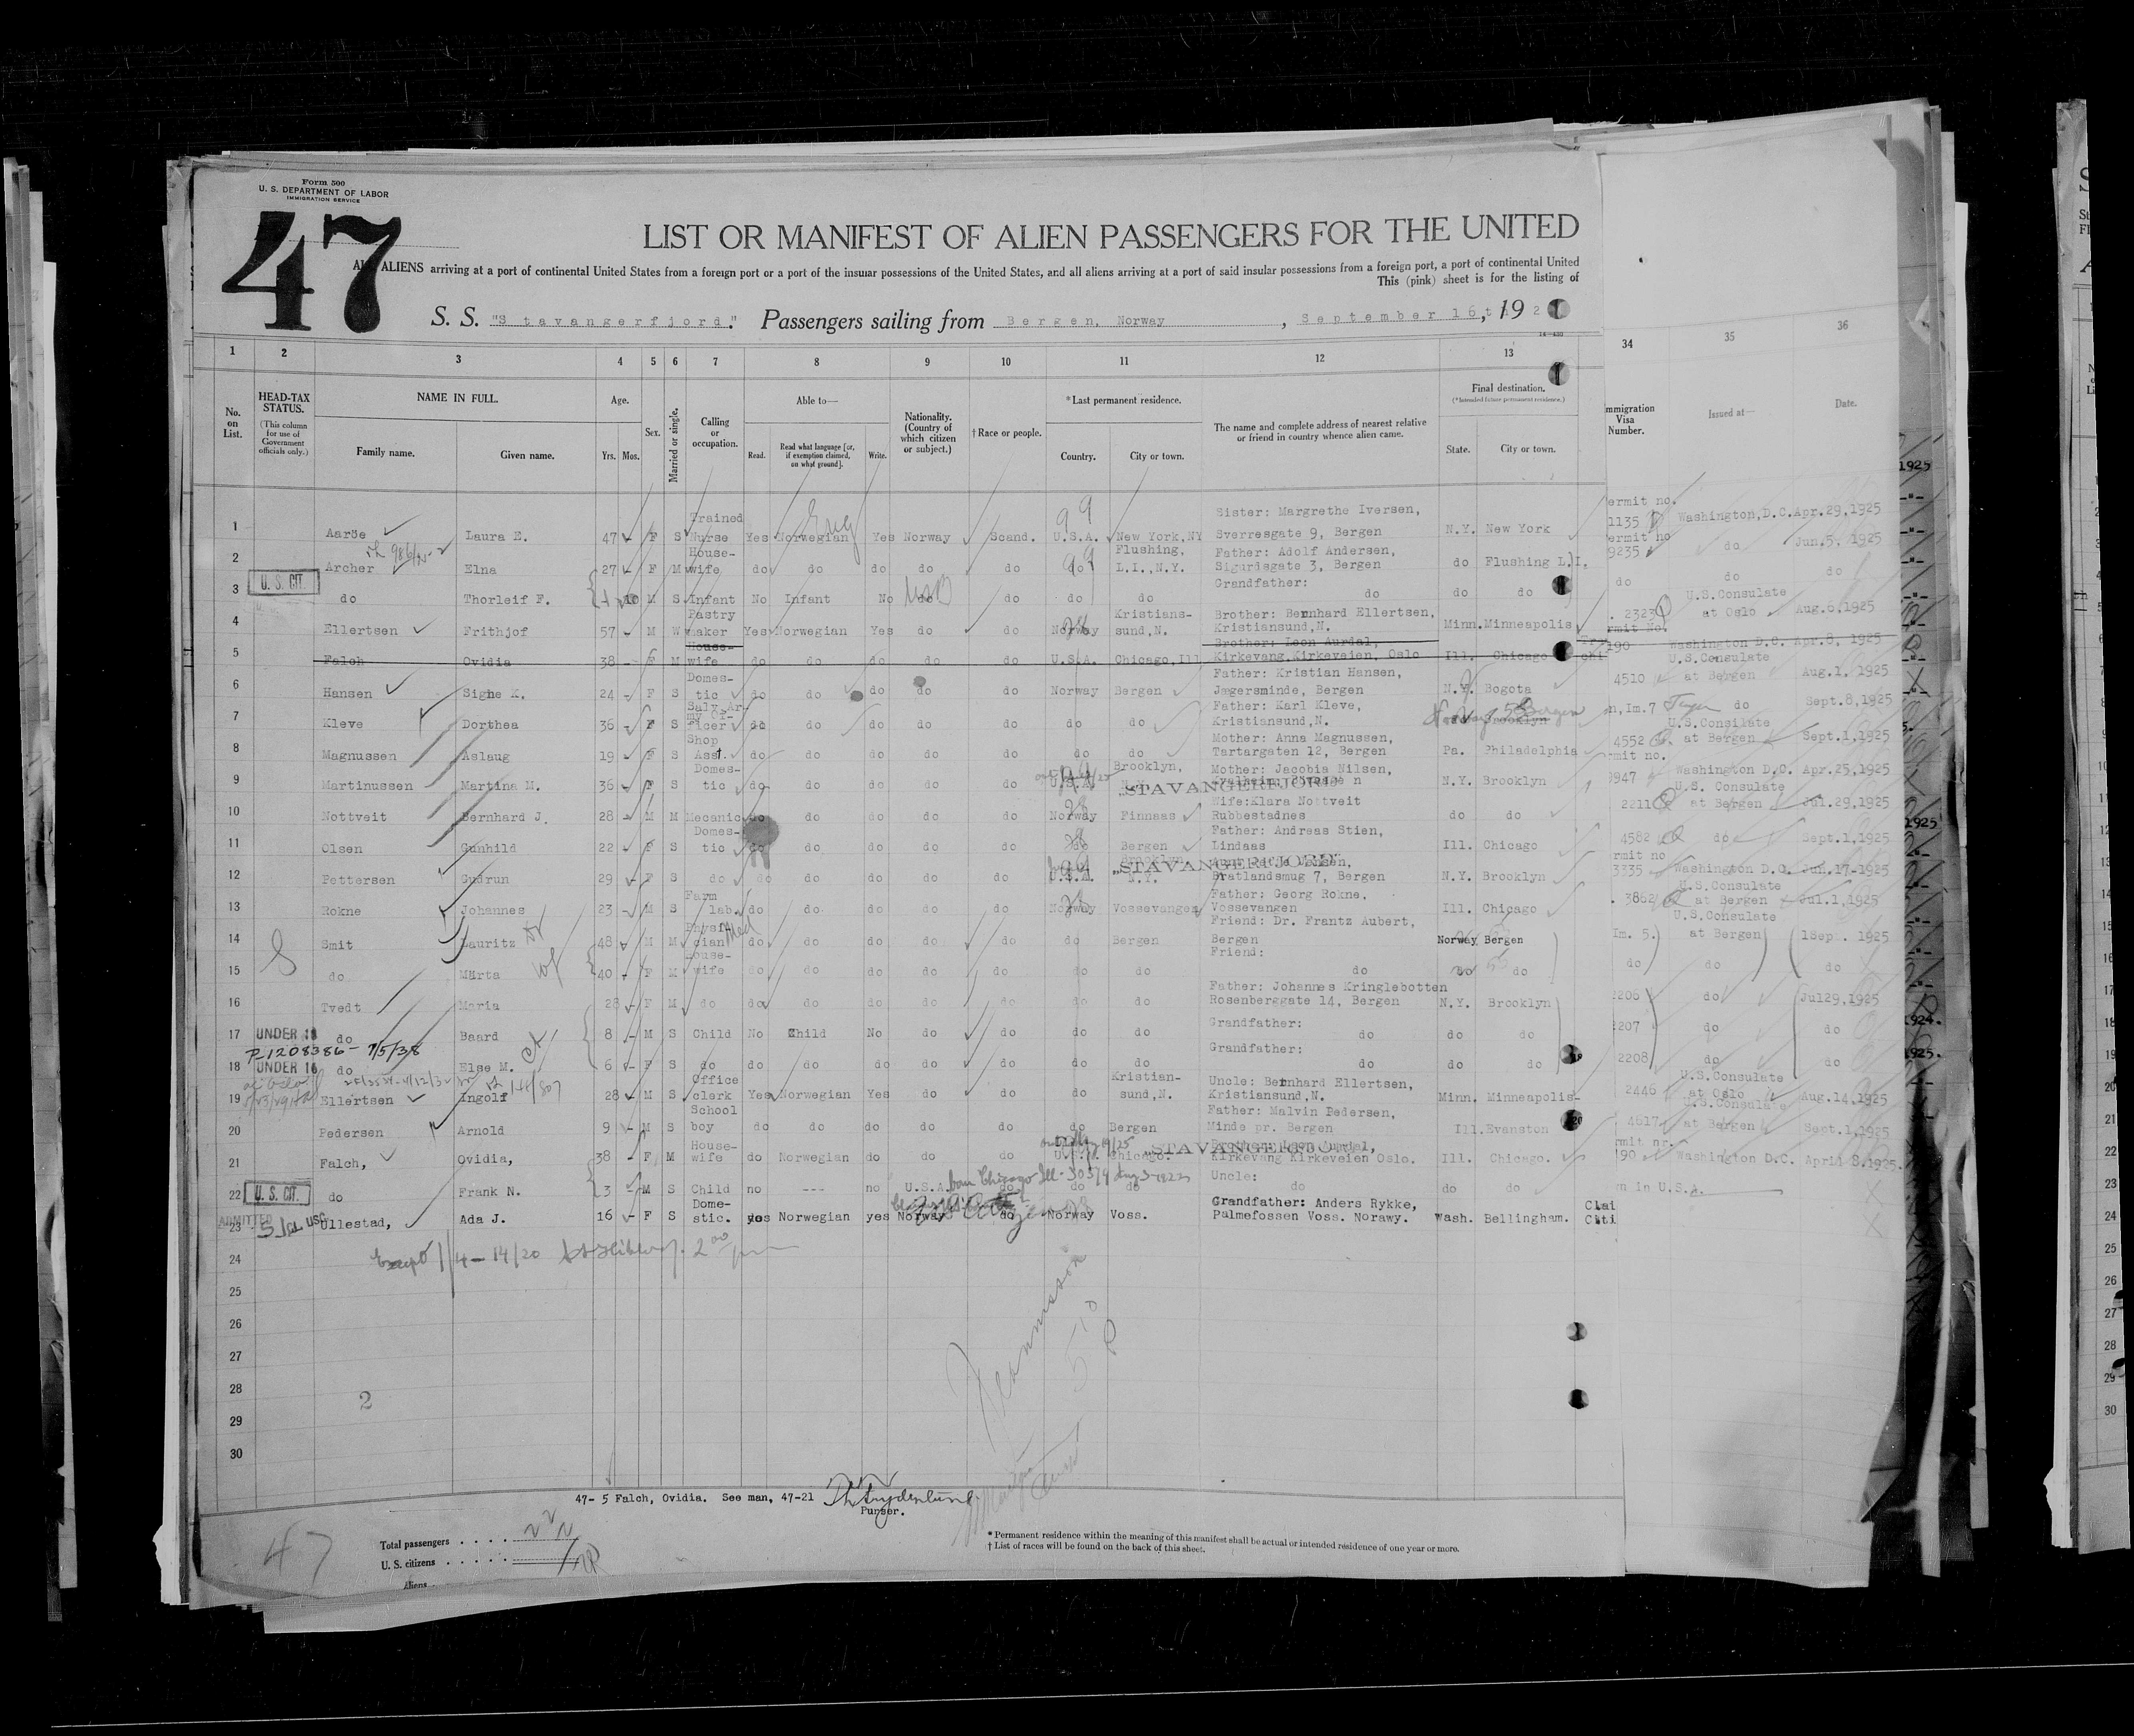 Form 500
U. S. DEPARTMENT OF LABOR
IMMIGRATION SERVICE
47
LIST OR MANIFEST OF ALIEN PASSENGERS FOR THE UNITED
ALIENS arriving at a port of continental United States from a foreign port or a port of the insular possessions of the United States, and all aliens arriving at a port of said insular possessions from a foreign port, a port of continental United
This (pink) sheet is for the listing of
S. S. "Stavangerfjord." Passengers sailing from Bergen, Norway, September 16th, 192
1 2 3 4 5 6 7 8 9 10 11 12 13 34 35 36
No. on List. HEAD-TAX STATUS. (This column for use of Government officials only.) NAME IN FULL. Family name. Given name. Age. Yrs. Mos. Sex. Married or single. Calling or occupation. Able to— Read. Read what language [or, if exemption claimed, on what ground]. Write. Nationality. (Country of which citizen or subject.) †Race or people. *Last permanent residence. Country. City or town. The name and complete address of nearest relative or friend in country whence alien came. Final destination. (*Intended future permanent residence.) State. City or town. mmigration Visa Number. Issued at— Date.
1 Aaröe Laura E. 47 F S Trained Nurse Yes Norwegian Yes Norway Scand. U.S.A. New York,NY Sister: Margrethe Iversen, Sverresgate 9, Bergen N.Y. New York ermit no. 1135 Washington,D.C. Apr.29,1925
2 Archer Elna 27 F M House-wife do do do do do do Flushing, L.I.,N.Y. Father: Adolf Andersen, Sigurdsgate 3, Bergen do Flushing L.I. ermit no 9235 do Jun.5. 1925
3 U. S. CIT. do Thorleif F. 10 M S Infant No Infant No do do do do Grandfather: do do do do do do
4 Ellertsen Frithjof 57 M W Pastry maker Yes Norwegian Yes do do Norway Kristians-sund,N. Brother: Bernhard Ellertsen, Kristiansund,N. Minn. Minneapolis 2323 U.S.Consulate at Oslo Aug.6,1925
5 Falch Ovidia 38 F M House-wife do do do do do U.S.A. Chicago,Ill Brother: Leon Aurdal, Kirkevang.Kirkeveien, Oslo Ill. Chicago rmit No. 190 Washington D.C. Apr.8, 1925
6 Hansen Signe K. 24 F S Domes-tic do do do do do Norway Bergen Father: Kristian Hansen, Jægersminde, Bergen N.Y. Bogota 4510 U.S.Consulate at Bergen Aug.1, 1925
7 Kleve Dorthea 36 F S Salv.Ar-my Of-ficer do do do do do do do Father: Karl Kleve, Kristiansund,N. Norway Bergen Brooklyn n,Im.7 do Sept.8,1925
8 Magnussen Aslaug 19 F S Shop Asst. do do do do do do do Mother: Anna Magnussen, Tartargaten 12, Bergen Pa. Philadelphia 4552 U.S.Consilate at Bergen Sept.1,1925
9 Martinussen Martina M. 36 F S Domes-tic do do do do do U.S.A. Brooklyn, "STAVANGERFJORD" Mother: Jacobia Nilsen, N.Y. Brooklyn mit no. 9947 Washington D.C. Apr.25,1925
10 Nottveit Bernhard J. 28 M M Mecanic do do do do do Norway Finnaas Wife:Klara Nottveit Rubbestadnes do do 2211 U.S. Consulate at Bergen Jul.29,1925
11 Olsen Gunhild 22 F S Domes-tic do do do do do do Bergen Father: Andreas Stien, Lindaas Ill. Chicago 4582 do Sept.1,1925
12 Pettersen Gudrun 29 F S do do do do do do U.S.A. Brooklyn "STAVANGERFJORD" Bratlandsmug 7, Bergen N.Y. Brooklyn rmit no 3335 Washington D.C. Jun.17-1925
13 Rokne Johannes 23 M S Farm lab. do do do do do Norway Vossevangen Father: Georg Rokne, Vossevangen Ill. Chicago 3862 U.S.Consulate at Bergen Jul.1,1925
14 Smit Lauritz 48 M M Physi-cian do do do do do do Bergen Friend: Dr. Frantz Aubert, Bergen Norway Bergen Im. 5. U.S.Consulate at Bergen 1Sep. 1925
15 do Märta 40 F M House-wife do do do do do do do Friend: do do do do do do
16 Tvedt Maria 28 F M do do do do do do do do Father: Johannes Kringlebotten Rosenberggate 14, Bergen N.Y. Brooklyn 2206 do Jul29,1925
17 UNDER 16 do Baard 8 M S Child No Child No do do do do Grandfather: do do do 2207 do do
P-1208386- 7/5/38
18 UNDER 16 do Else M. 6 F S do do do do do do do do Grandfather: do do do 2208 do do
19 Ellertsen Ingolf 28 M S Office clerk Yes Norwegian Yes do do do Kristian-sund,N. Uncle: Bernhard Ellertsen, Kristiansund,N. Minn. Minneapolis 2446 U.S.Consulate at Oslo Aug.14,1925
20 Pedersen Arnold 9 M S School boy do do do do do do Bergen Father: Malvin Pedersen, Minde pr. Bergen Ill. Evanston 4617 U.S.Consulate at Bergen Sept.1,1925
21 Falch, Ovidia, 38 F M House-wife do Norwegian do do do U.S.A. Chicago. "STAVANGERFJORD" Brother: Leon Aurdal, Kirkevang Kirkeveien Oslo. Ill. Chicago. rmit nr. 90 Washington D.C. April 8.1925.
22 U. S. CIT. do Frank N. 3 M S Child no --- no U.S.A. born Chicago Ill. do do do Uncle: do do do wn in U.S.A.
23 ADMITTED Ullestad, Ada J. 16 F S Dome-stic. yes Norwegian yes Norway do Norway Voss. Grandfather: Anders Rykke, Palmefossen Voss. Norawy. Wash. Bellingham. Clai Citi
24 4-14/20
25
26
27
28
29
30
2
47- 5 Falch, Ovidia. See man, 47-21
Purser.
47
Total passengers . . . .
U. S. citizens . . . . . .
Aliens
* Permanent residence within the meaning of this manifest shall be actual or intended residence of one year or more.
† List of races will be found on the back of this sheet.